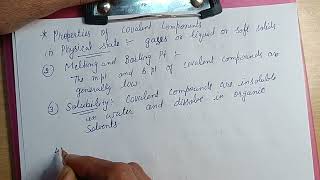 * Properties of Covalent Components
(1) Physical state :- gases or liquid or soft solids
(2) Melting and Boiling Pt :-
The m.pt and b.pt of covalent compounds are
generally low.
(3) Solubility :- Covalent compounds are insoluble
in water and dissolve in organic
Solvents.